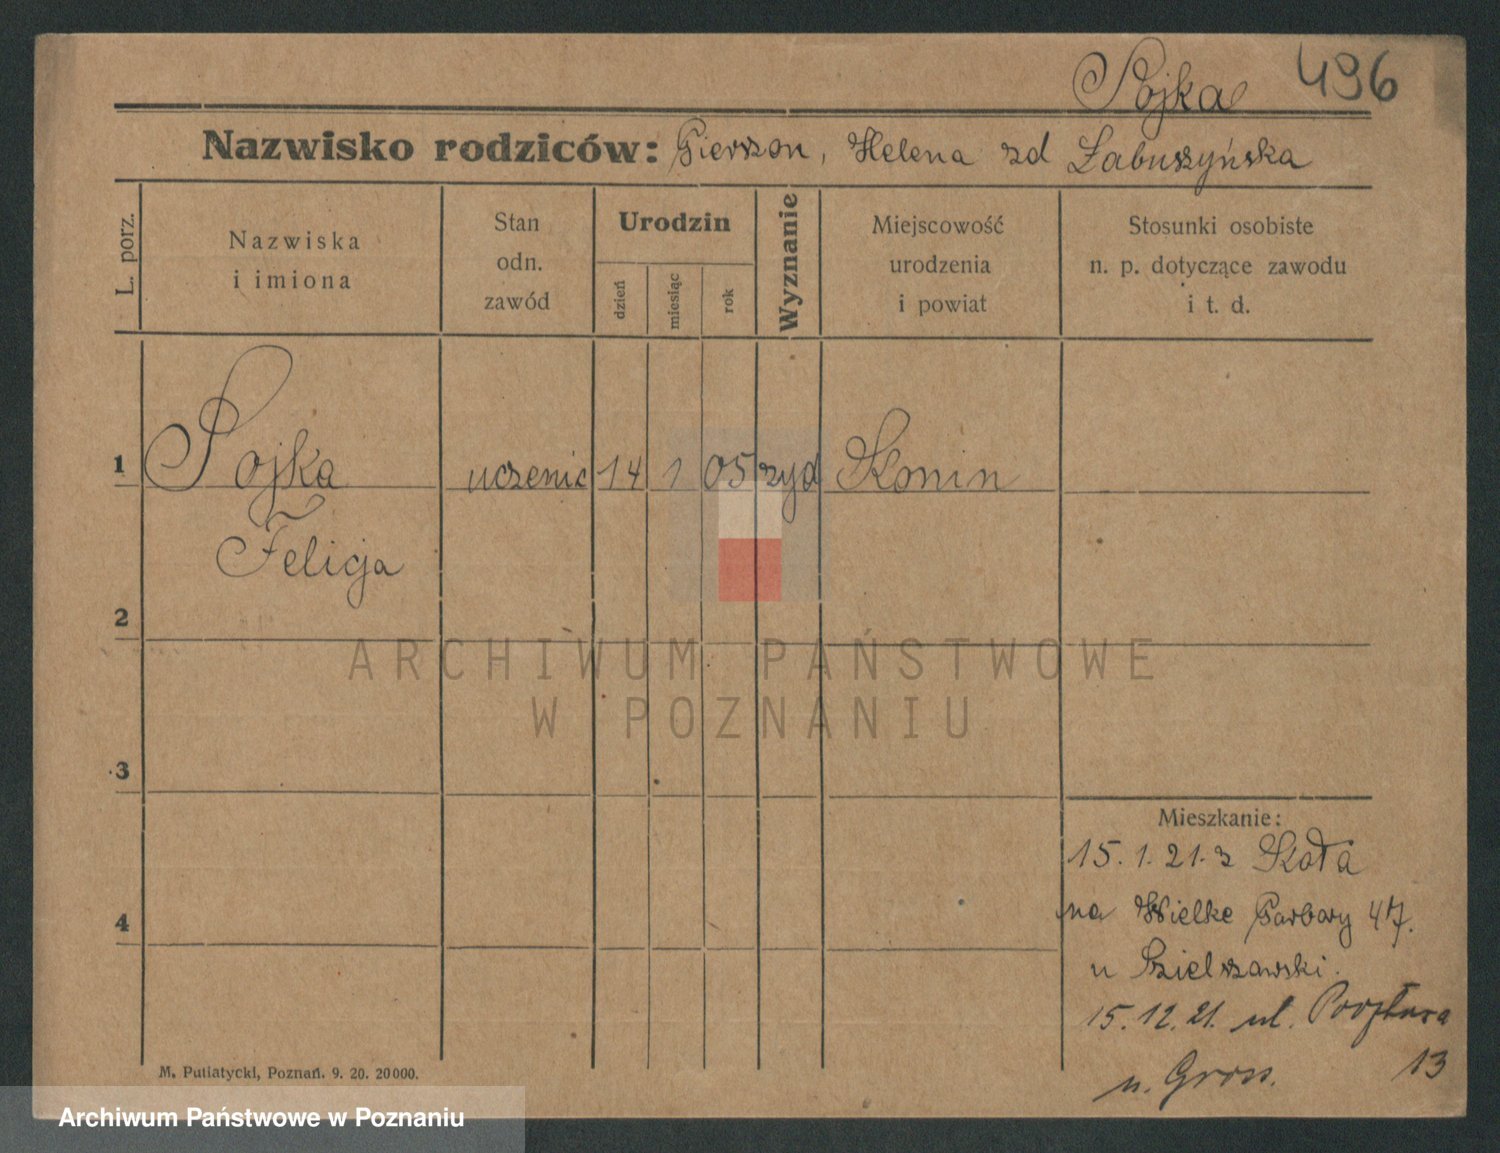 Sojka 496
Nazwisko rodziców: Gierszon, Helena zd Łabuszyńska
L. porz.
Nazwiska
i imiona
Stan
odn.
zawód
Urodzin
dzień
miesiąc
rok
Wyznanie
Miejscowość
urodzenia
i powiat
Stosunki osobiste
n. p. dotyczące zawodu
i t. d.
1 Sojka uczenic 14 1 05 żyd Konin
Felicja
2
3
4
Mieszkanie:
15. 1. 21. z Koła
na Wielke Garbary 47.
u
15. 12. 21. ul.
13
u. Gross.
M. Putiatycki, Poznań. 9. 20. 20000.
ARCHIWUM PAŃSTWOWE
W POZNANIU
Archiwum Państwowe w Poznaniu